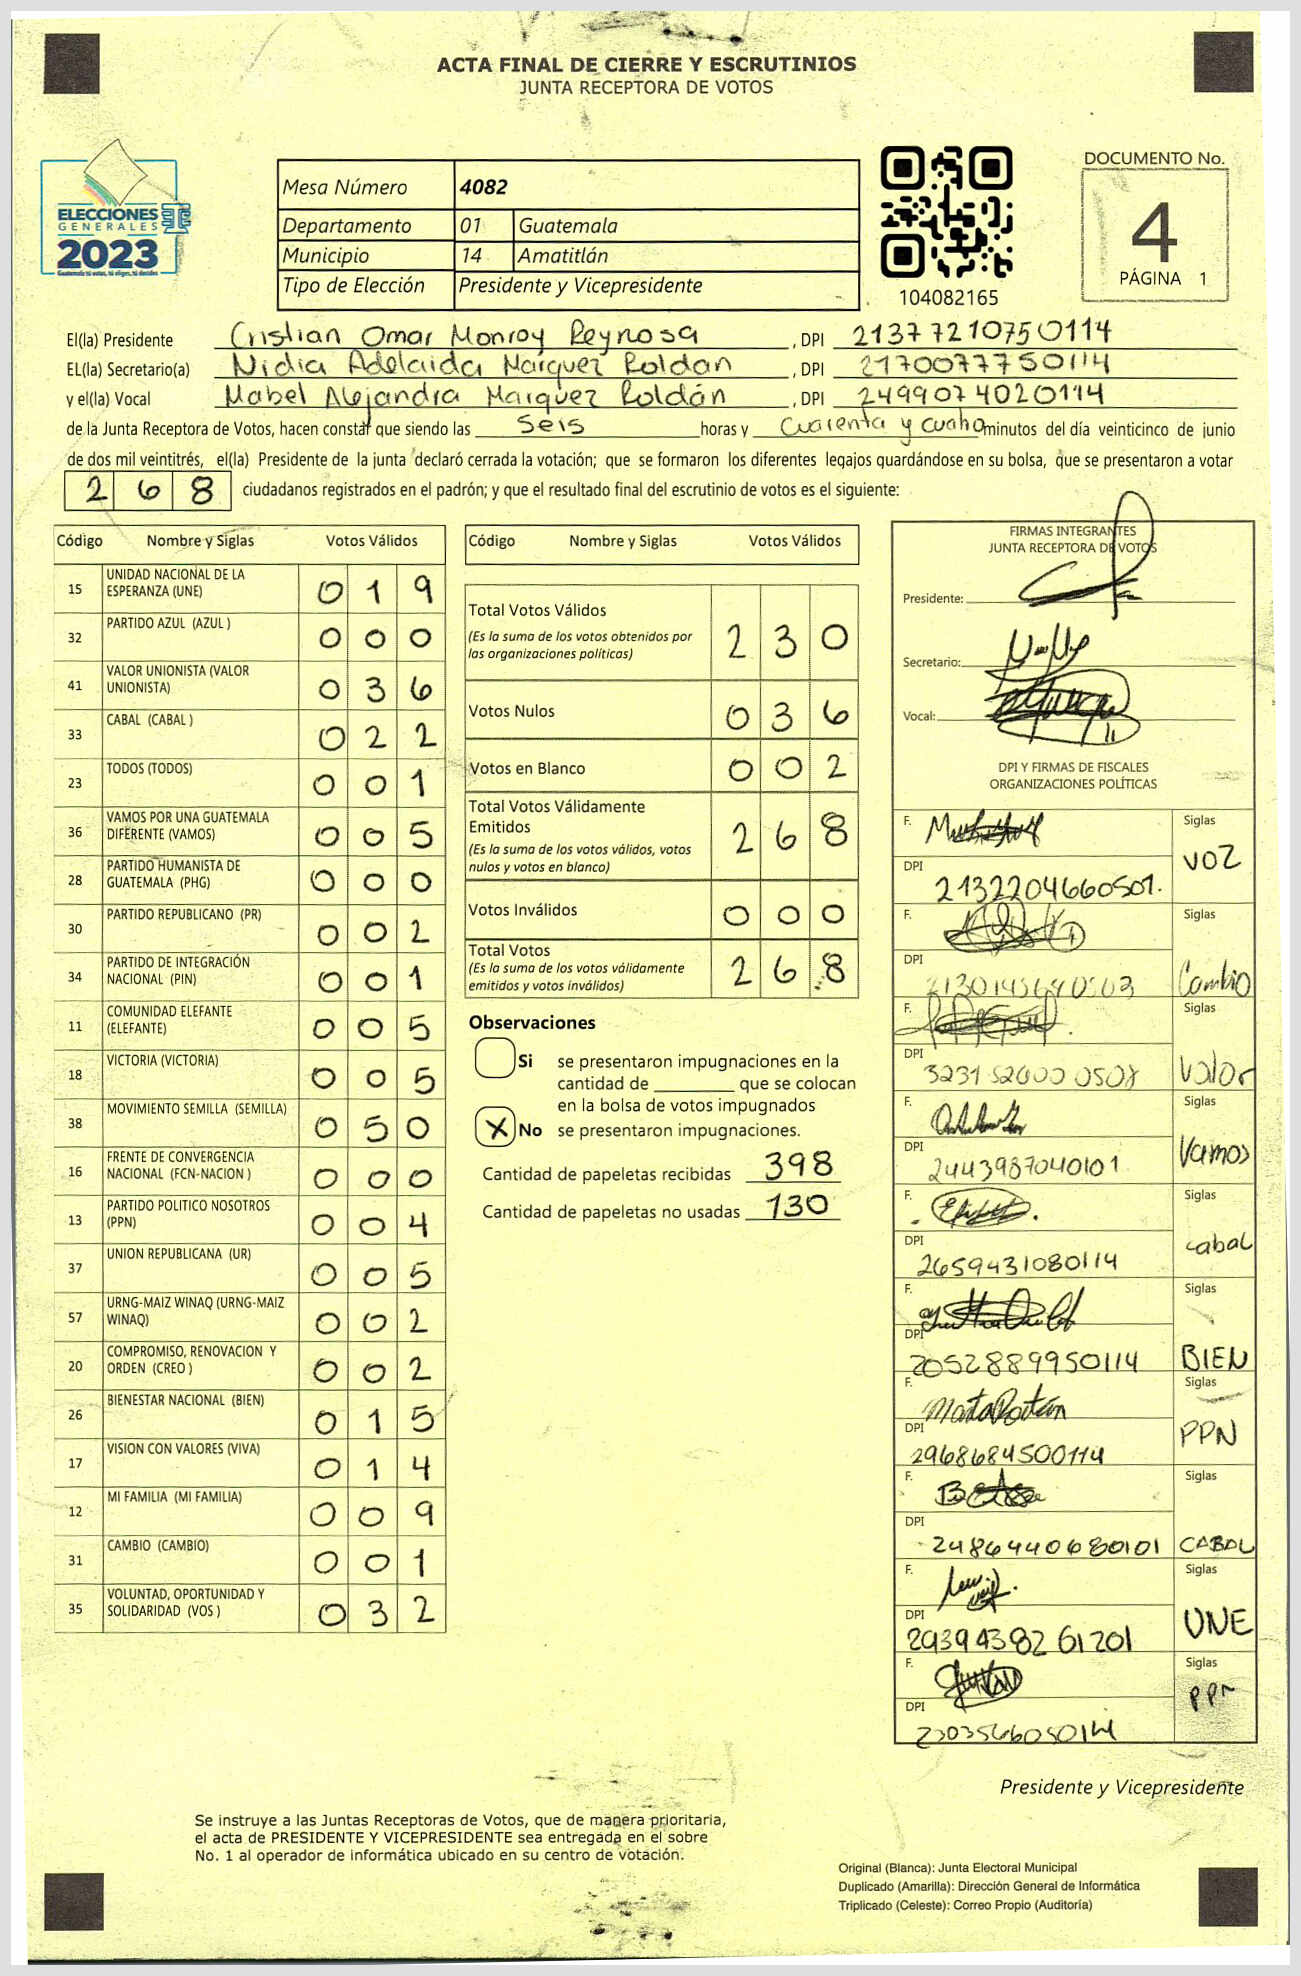 ACTA FINAL DE CIERRE Y ESCRUTINIOS
JUNTA RECEPTORA DE VOTOS
ELECCIONES
GENERALES
2023
Guatemala tú votas, tú eliges, tú decides
Mesa Número 4082
Departamento 01 Guatemala
Municipio 14 Amatitlán
Tipo de Elección Presidente y Vicepresidente
104082165
DOCUMENTO No.
4
PÁGINA 1
El(la) Presidente Cristian Omar Monroy Reynosa, DPI 2137721075 0114
EL(la) Secretario(a) Nidia Adelaida Marquez Roldan, DPI 2170077750114
y el(la) Vocal Mabel Alejandra Marquez Roldán, DPI 2499074020114
de la Junta Receptora de Votos, hacen constar que siendo las Seis horas y Cuarenta y cuatro minutos del día veinticinco de junio
de dos mil veintitrés, el(la) Presidente de la junta declaró cerrada la votación; que se formaron los diferentes legajos guardándose en su bolsa, que se presentaron a votar
2 6 8 ciudadanos registrados en el padrón; y que el resultado final del escrutinio de votos es el siguiente:
Código Nombre y Siglas Votos Válidos
15 UNIDAD NACIONAL DE LA ESPERANZA (UNE) 0 1 9
32 PARTIDO AZUL (AZUL ) 0 0 0
41 VALOR UNIONISTA (VALOR UNIONISTA) 0 3 6
33 CABAL (CABAL ) 0 2 2
23 TODOS (TODOS) 0 0 1
36 VAMOS POR UNA GUATEMALA DIFERENTE (VAMOS) 0 0 5
28 PARTIDO HUMANISTA DE GUATEMALA (PHG) 0 0 0
30 PARTIDO REPUBLICANO (PR) 0 0 2
34 PARTIDO DE INTEGRACIÓN NACIONAL (PIN) 0 0 1
11 COMUNIDAD ELEFANTE (ELEFANTE) 0 0 5
18 VICTORIA (VICTORIA) 0 0 5
38 MOVIMIENTO SEMILLA (SEMILLA) 0 5 0
16 FRENTE DE CONVERGENCIA NACIONAL (FCN-NACION ) 0 0 0
13 PARTIDO POLITICO NOSOTROS (PPN) 0 0 4
37 UNION REPUBLICANA (UR) 0 0 5
57 URNG-MAIZ WINAQ (URNG-MAIZ WINAQ) 0 0 2
20 COMPROMISO, RENOVACION Y ORDEN (CREO ) 0 0 2
26 BIENESTAR NACIONAL (BIEN) 0 1 5
17 VISION CON VALORES (VIVA) 0 1 4
12 MI FAMILIA (MI FAMILIA) 0 0 9
31 CAMBIO (CAMBIO) 0 0 1
35 VOLUNTAD, OPORTUNIDAD Y SOLIDARIDAD (VOS ) 0 3 2
Código Nombre y Siglas Votos Válidos
Total Votos Válidos 2 3 0
(Es la suma de los votos obtenidos por
las organizaciones políticas)
Votos Nulos 0 3 6
Votos en Blanco 0 0 2
Total Votos Válidamente
Emitidos 2 6 8
(Es la suma de los votos válidos, votos
nulos y votos en blanco)
Votos Inválidos 0 0 0
Total Votos 2 6 8
(Es la suma de los votos válidamente
emitidos y votos inválidos)
Observaciones
Si se presentaron impugnaciones en la
cantidad de ________ que se colocan
en la bolsa de votos impugnados
X No se presentaron impugnaciones.
Cantidad de papeletas recibidas 398
Cantidad de papeletas no usadas 130
FIRMAS INTEGRANTES
JUNTA RECEPTORA DE VOTOS
Presidente:
Secretario:
Vocal:
DPI Y FIRMAS DE FISCALES
ORGANIZACIONES POLÍTICAS
F. Siglas
VOZ
DPI 2132204660501.
F. Siglas
DPI Cambio
F. Siglas
DPI Valor
F. Siglas
Vamos
DPI 2443987040101
F. Siglas
cabal
DPI 2659431080114
F. Siglas
DPI 2052889950114 BIEN
F. Siglas
PPN
DPI 2968684500114
F. Siglas
DPI 2486440680101 CABAL
F. Siglas
UNE
DPI 2939438261201
F. Siglas
PPN
DPI 2303566050114
Presidente y Vicepresidente
Se instruye a las Juntas Receptoras de Votos, que de manera prioritaria,
el acta de PRESIDENTE Y VICEPRESIDENTE sea entregada en el sobre
No. 1 al operador de informática ubicado en su centro de votación.
Original (Blanca): Junta Electoral Municipal
Duplicado (Amarilla): Dirección General de Informática
Triplicado (Celeste): Correo Propio (Auditoría)